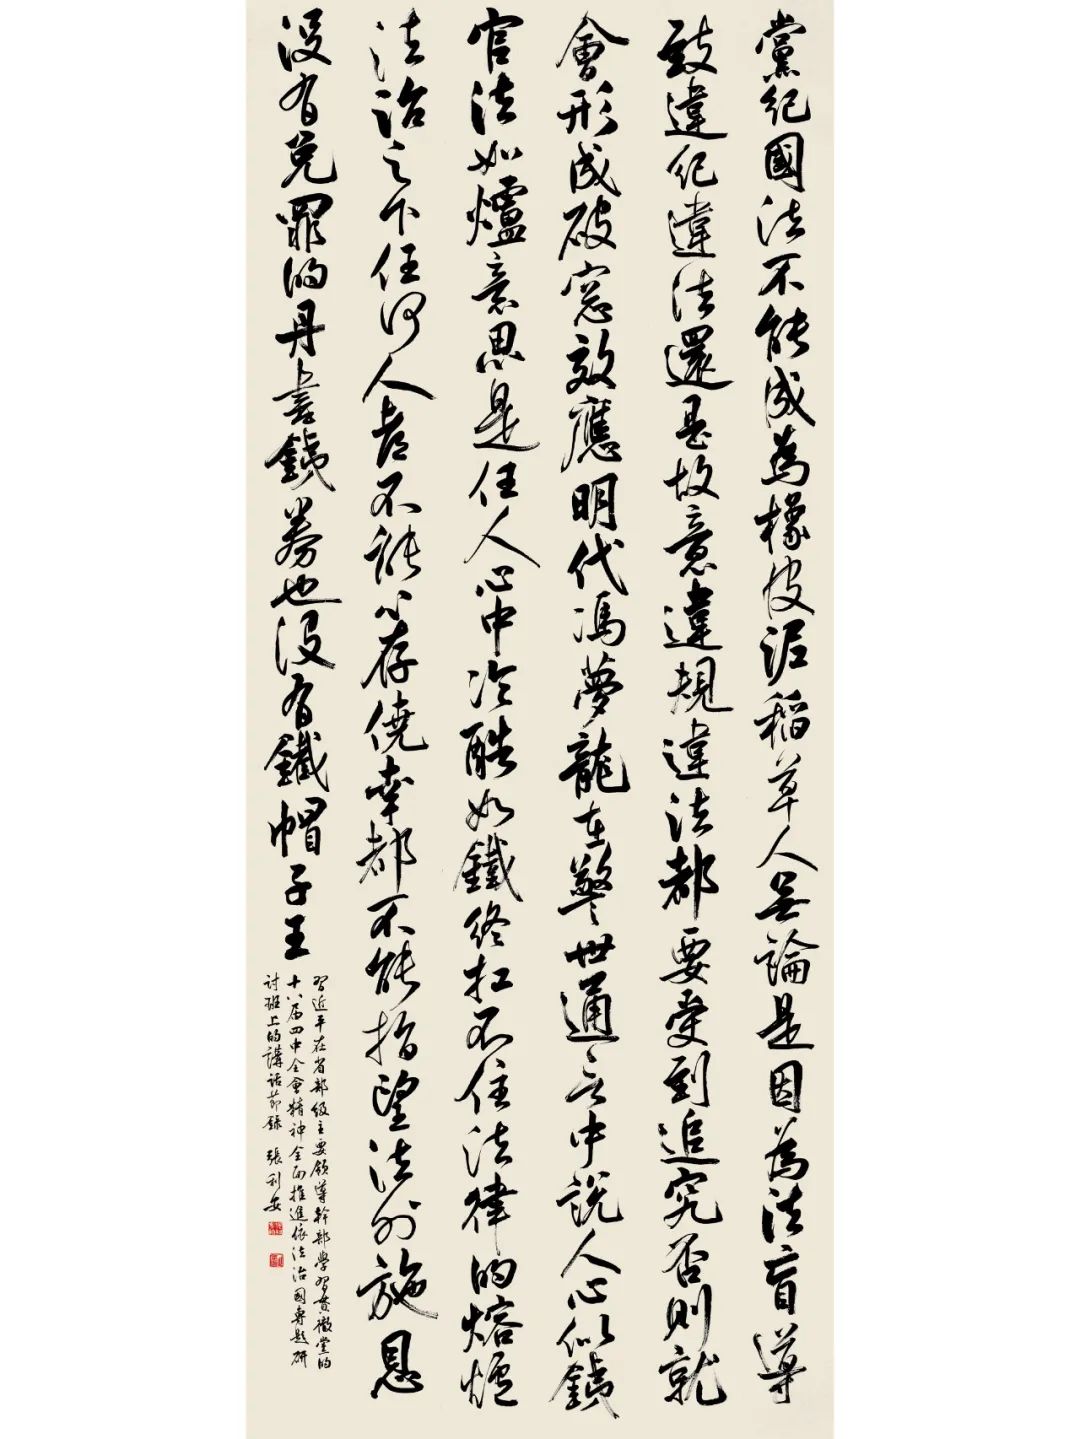 黨紀國法不能成爲橡皮泥稻草人無論是因爲法盲導
致違紀違法還是故意違規違法都要受到追究否則就
會形成破窓效應明代馮夢龍在警世通言中説人心似鐵
官法如爐意思是任人心中冷酷如鐵終扛不住法律的熔爐
法治之下任何人都不能心存僥幸都不能指望法外施恩
没有免罪的丹書鐵券也没有鐵帽子王
習近平在省部級主要領導幹部學習貫徹黨的
十八屆四中全會精神全面推進依法治國專題研
討班上的講話節録 張利安